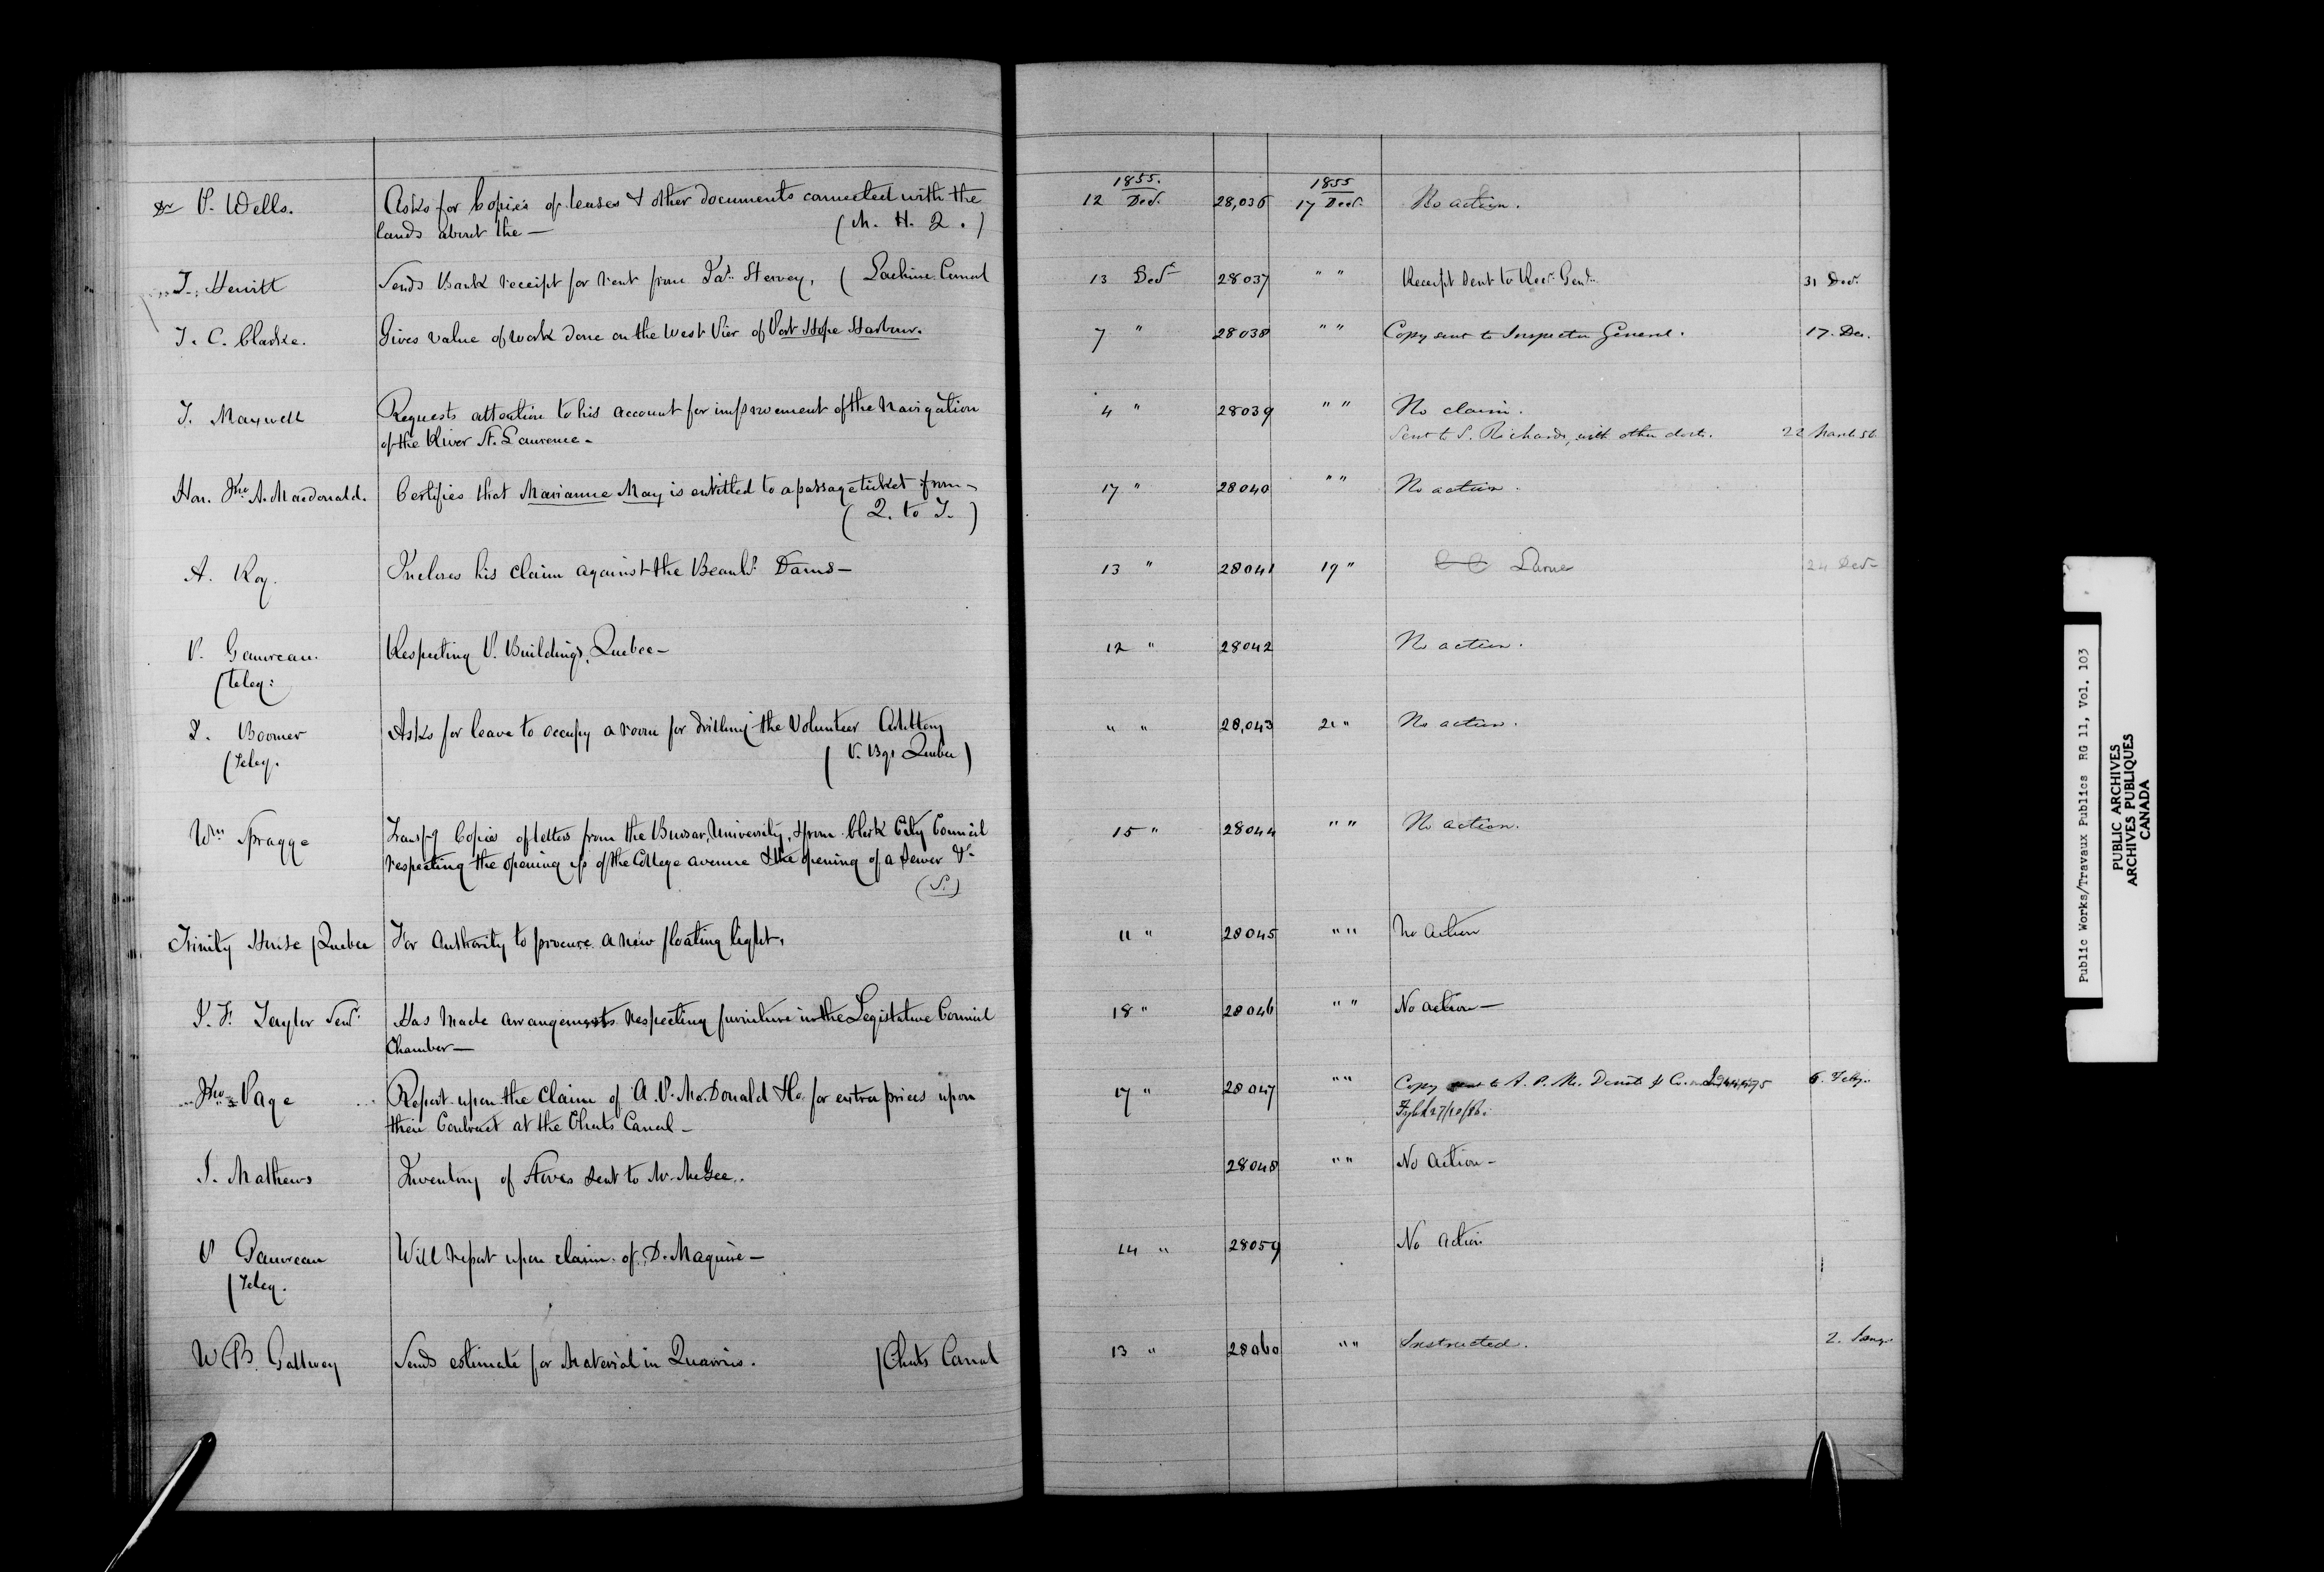 1855. 1855
P. Wells. Asks for Copies of leases & other documents connected with the 12 Decr. 28,036 17 Decr. No action.
lands about the — (M. H. Q.)
J. Hewitt Sends Bank receipt for rent from Jas. Hervey, ( Lachine Canal 13 Decr 28037 " " Receipt sent to Recr. Genl. 31 Decr.
T. C. Clarke. Gives value of work done on the West Pier of Port Hope Harbour. 7 " 28038 " " Copy sent to Inspector General. 17. Dec.
T. Maxwell Requests attention to his account for improvement of the Navigation 4 " 28039 " " No claim.
of the River St. Lawrence - Sent to S. Richards, with other docts. 22 March 56
Hon. Jno A. Macdonald. Certifies that Marianne May is entitled to a passage ticket from - 17 " 28040 " " No action.
( Q. to T. )
A. Roy. Incloses his claim against the Beauhs. Dams — 13 " 28041 19 " 24 Decr
P. Gauvreau. Respecting P. Buildings, Quebec — 12 " 28042 No action.
(Teleg:
Boomer Asks for leave to occupy a room for drilling the Volunteer Artillery " " 28,043 21 " No action.
(Teleg. ( P. Bgs Quebec )
Wm Spragge Transfg Copies of letters from the Bursar, University, & from Clerk City Council 15 " 28044 " " No action.
respecting the opening up of the College avenue & the opening of a Sewer &c
(S.)
Trinity House (Quebec For Authority to procure a new floating light. 11 " 28045 " " No Action
J. F. Taylor Senr. Has made arrangements respecting furniture in the Legislative Council 18 " 28046 " " No action —
Chamber —
Jno Page Report upon the claim of A. P. McDonald & Co. for extra prices upon 17 " 28047 " " Copy sent to A. P. Mc. Donald & Co. 6. Feby.
their Contract at the Chats Canal —
J. Mathews Inventory of Stoves sent to Mr. McGee. 28048 " " No Action -
P Gauvreau Will report upon claim of D. Maguire — 14 " 28059 No Action
(Teleg.
W. B. Gallwey Sends estimate for Material in Quarries. (Chats Canal 13 " 28060 " " Instructed. 2. Jany.
Public Works/Travaux Publics RG 11, Vol. 103
PUBLIC ARCHIVES
ARCHIVES PUBLIQUES
CANADA